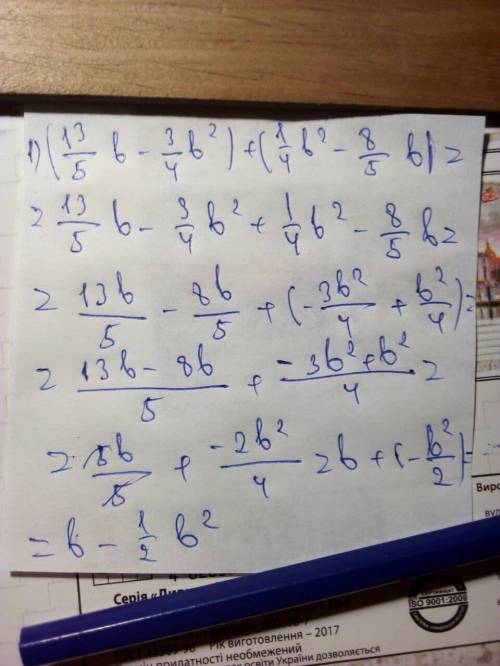 1) (13/5 b - 3/4 b²) + (1/4 b² - 8/5 b) =
= 13/5 b - 3/4 b² + 1/4 b² - 8/5 b =
= 13b/5 - 8b/5 + (-3b²/4 + b²/4) =
= (13b - 8b)/5 + (-3b² + b²)/4 =
= 5b/5 + (-2b²)/4 = b + (-b²/2) =
= b - 1/2 b²
Серія «
ISO 9001-2009
РІК виготовлення – 2017
придатності необмежений
освіти України дозволяється